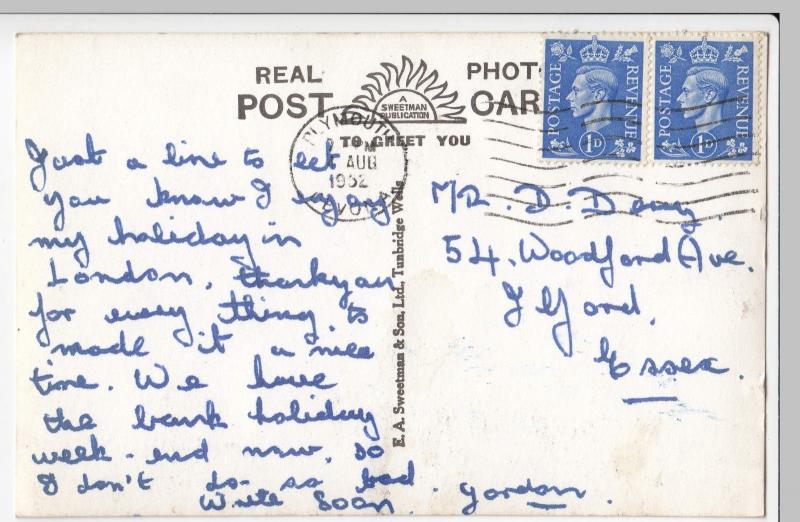 REAL PHOTO
POST CARD
A
SWEETMAN
PUBLICATION
TO GREET YOU
POSTAGE REVENUE
1D
POSTAGE REVENUE
1D
PLYMOUTH
AUG
1952
DEVON
Just a line to let
you know I enjoy
my holiday in
London, thankyou
for every thing, to
made it a nice
time. We have
the bank holiday
week-end now, so
I don't do so bad.
Write Soon. Gordon.
E. A. Sweetman & Son, Ltd., Tunbridge Wells
MR. D. Deny
54. Woodford Ave.
Ilford,
Essex.